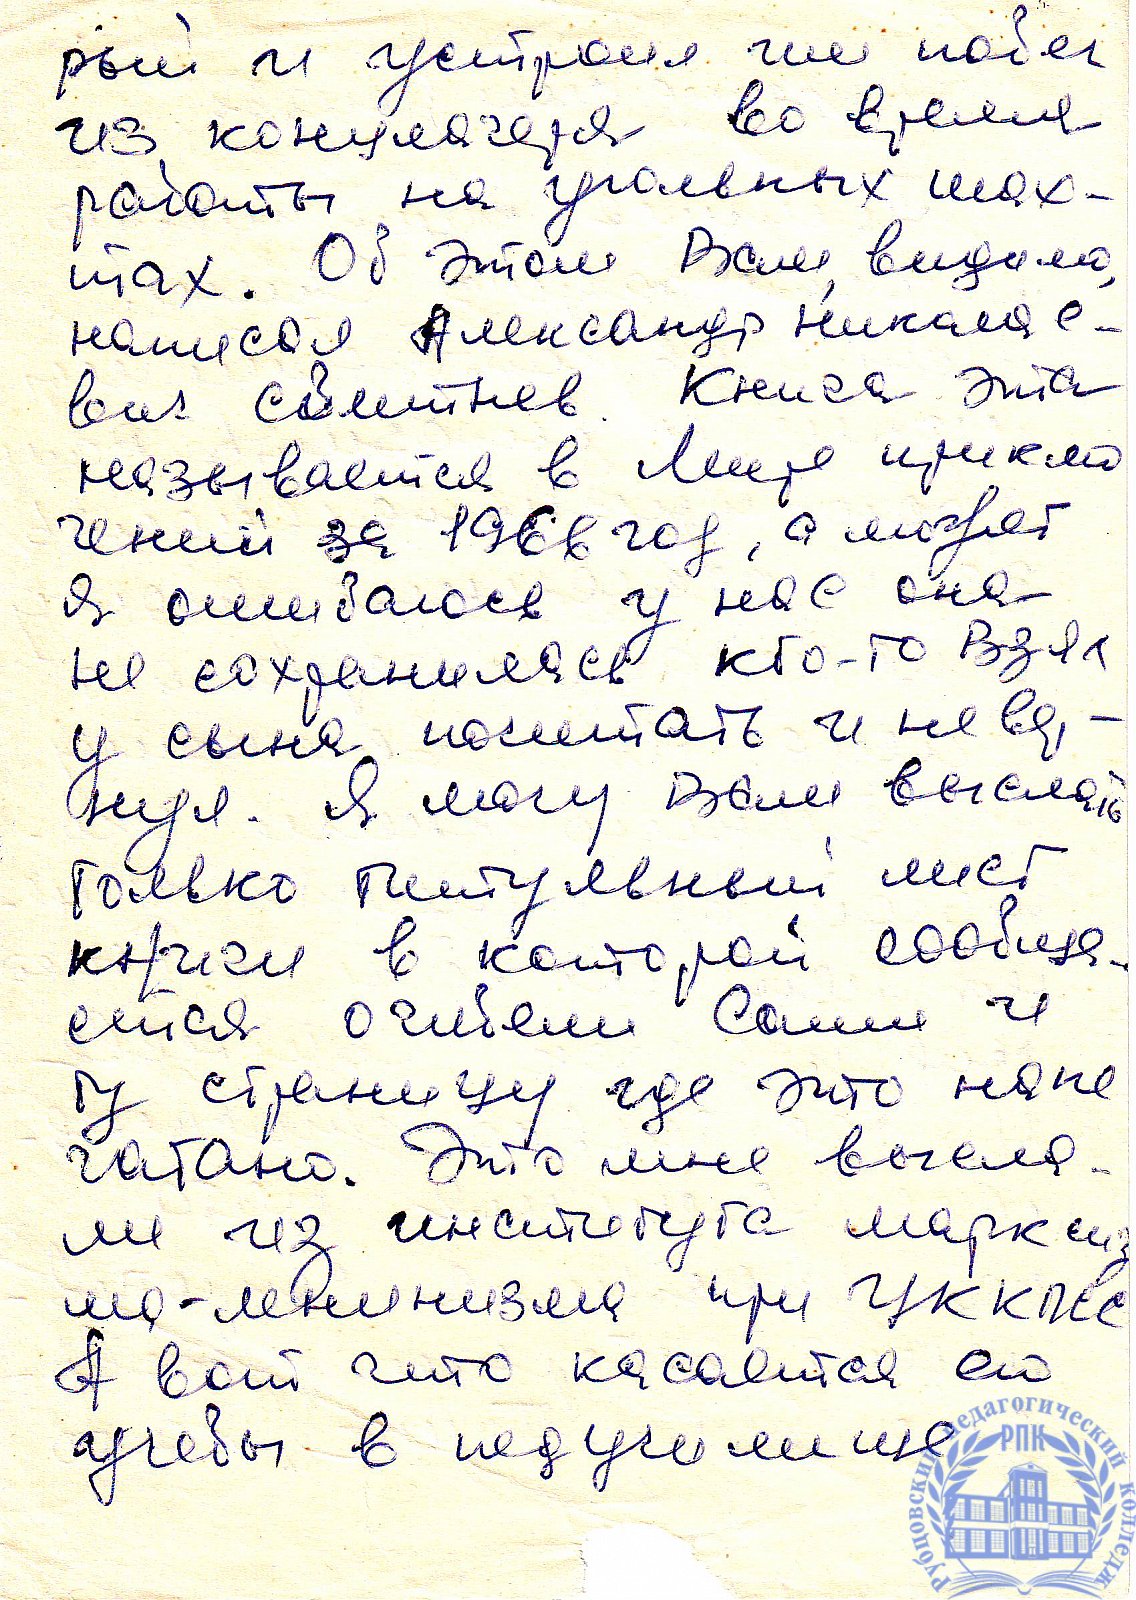 рый и устроил им побег
из концлагеря во время
работы на угольных шах-
тах. Об этом Вам, видимо,
написал Александр Николае-
вич Сметнев. Книга эта
называется в Мире приклю
чений за 1966 год, а может
я ошибаюсь у нас она
не сохранилась кто-то взял
у сына почитать и не вер-
нул. Я могу Вам выслать
только титульный лист
книги в которой сообща-
ется о гибели Саши и
ту страницу где это напе
чатано. Это мне высла-
ли из института марксиз
ма-ленинизма при ЦККПСС
А вот что касается его
учебы в педучилище
Рубцовский педагогический колледж
РПК